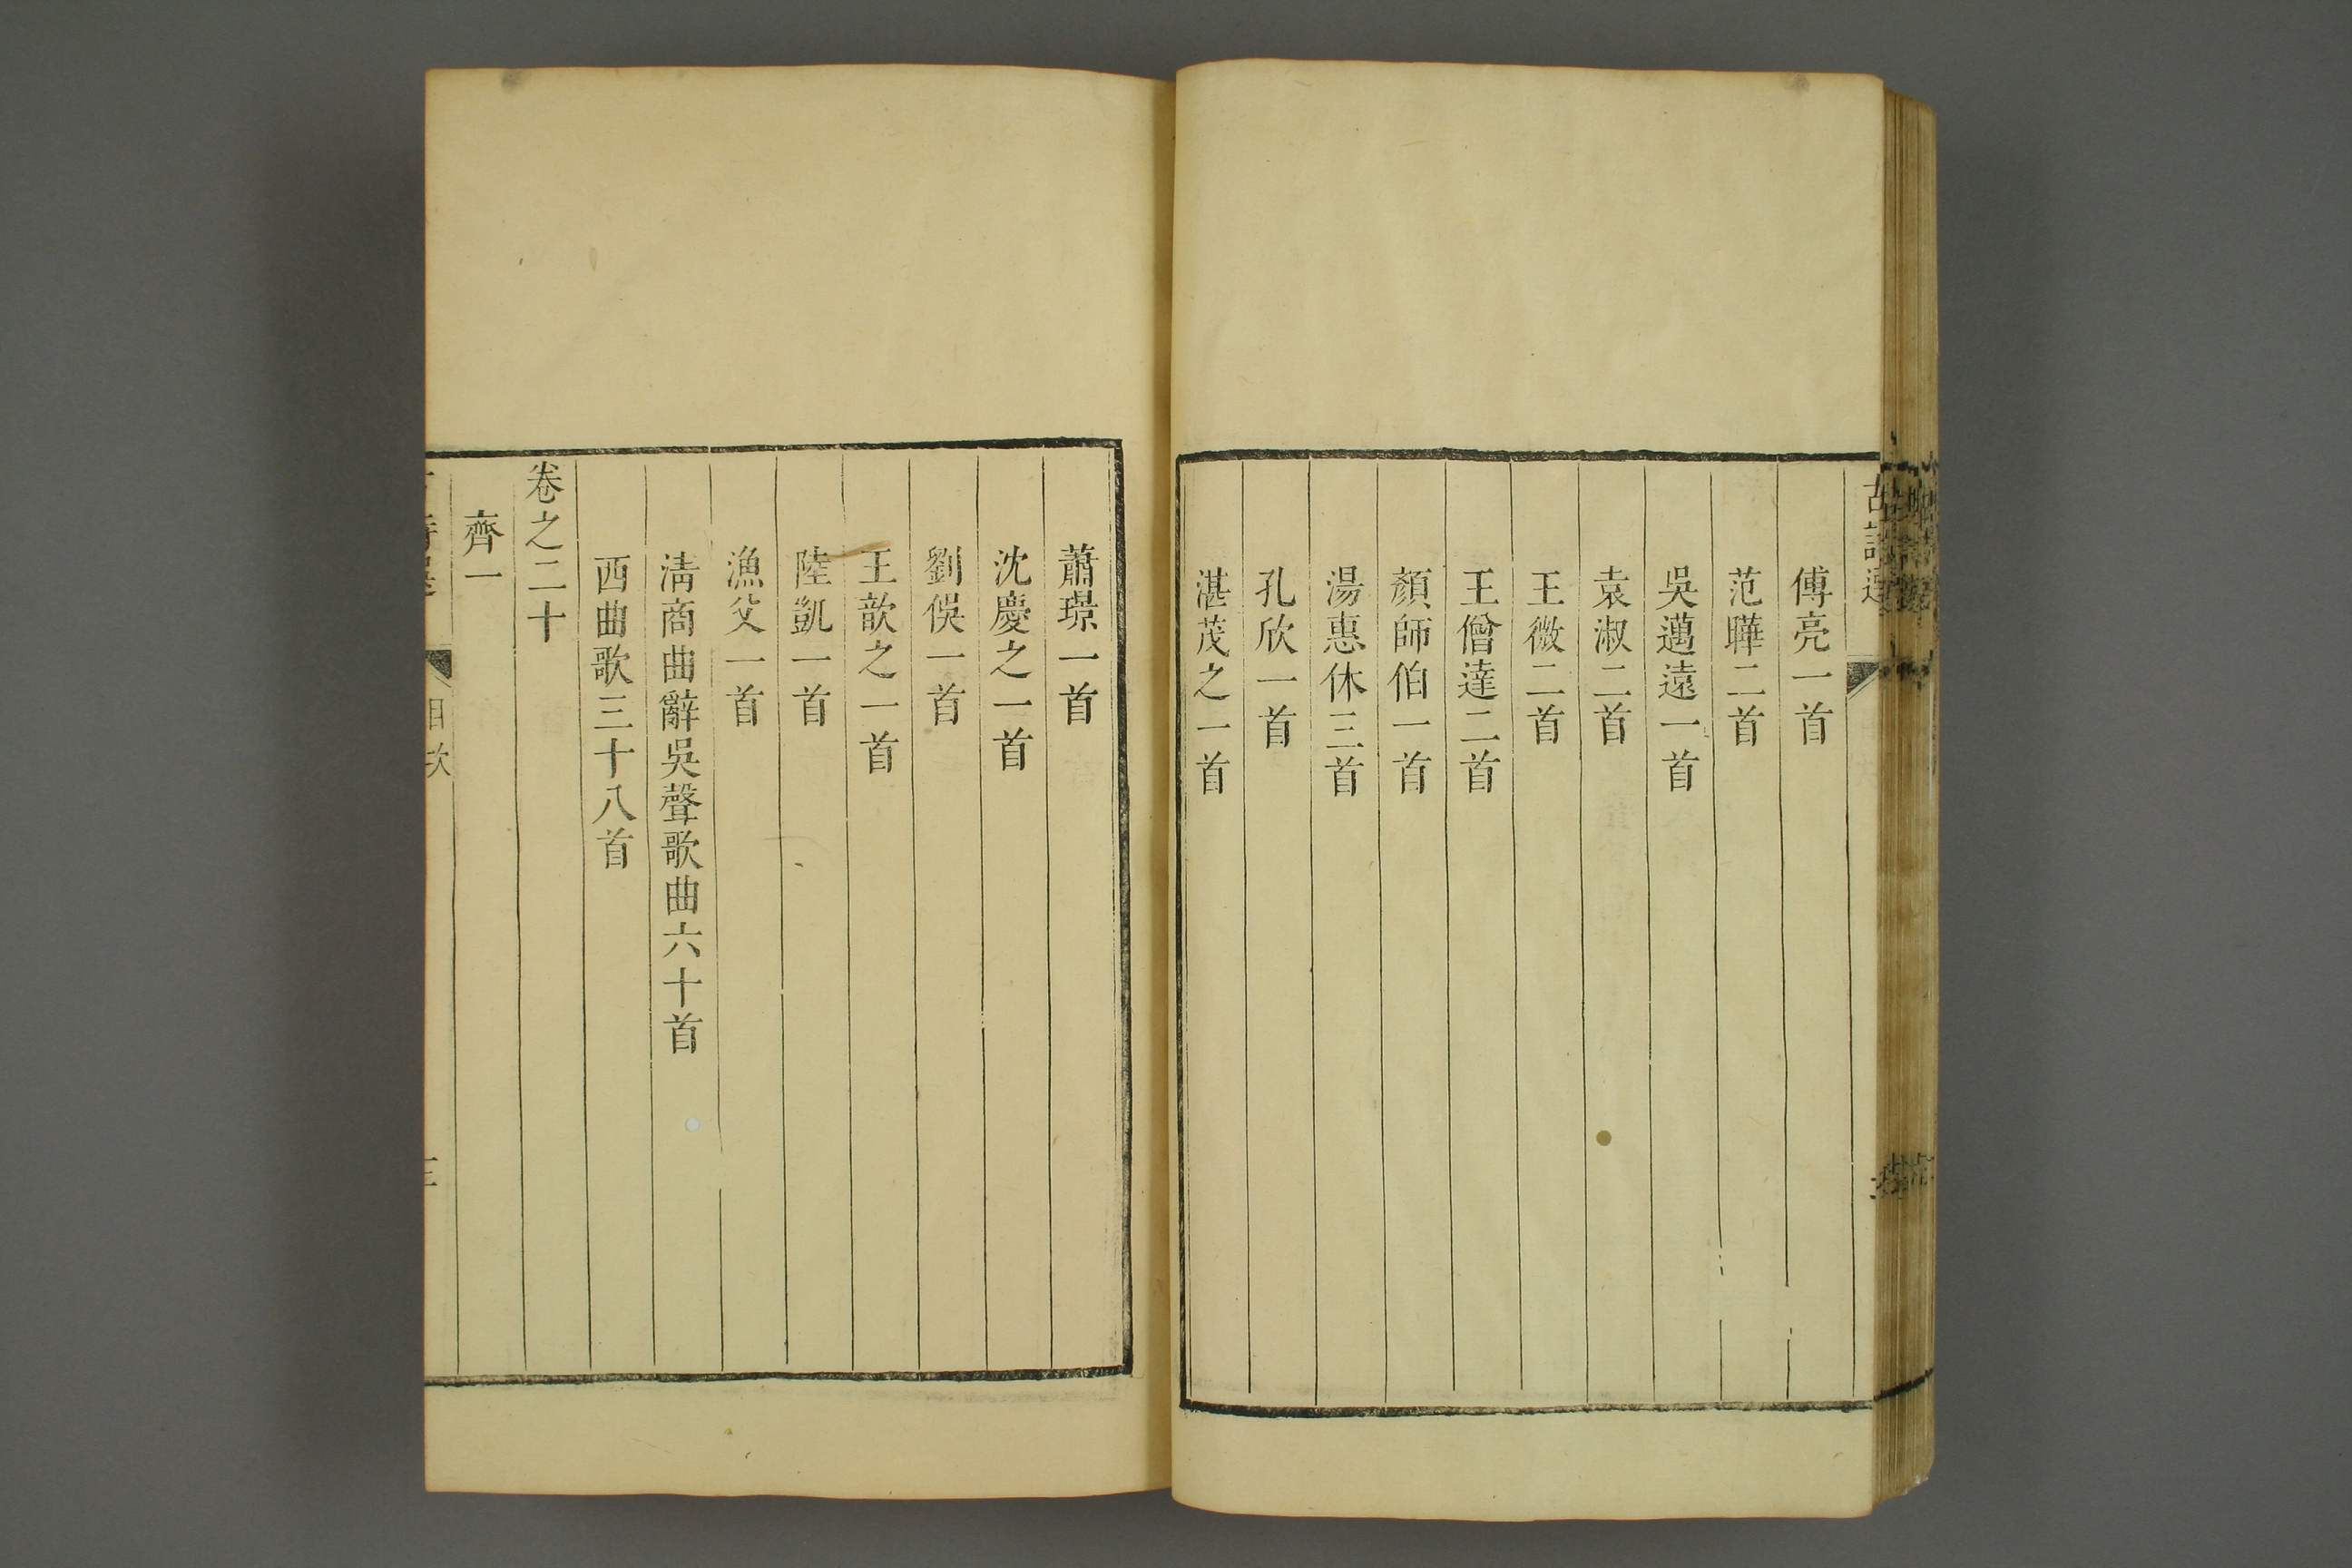 傅亮一首
范曄二首
吳邁遠一首
袁淑二首
王微二首
王僧達二首
顏師伯一首
湯惠休三首
孔欣一首
湛茂之一首
蕭璟一首
沈慶之一首
劉俁一首
王歆之一首
陸凱一首
漁父一首
清商曲辭吳聲歌曲六十首
西曲歌三十八首
卷之二十
齊一
目次